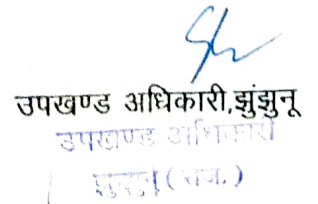 उपखण्ड अधिकारी,झुंझुनू
उपखण्ड अधिकारी
झुंझुनू (राज.)